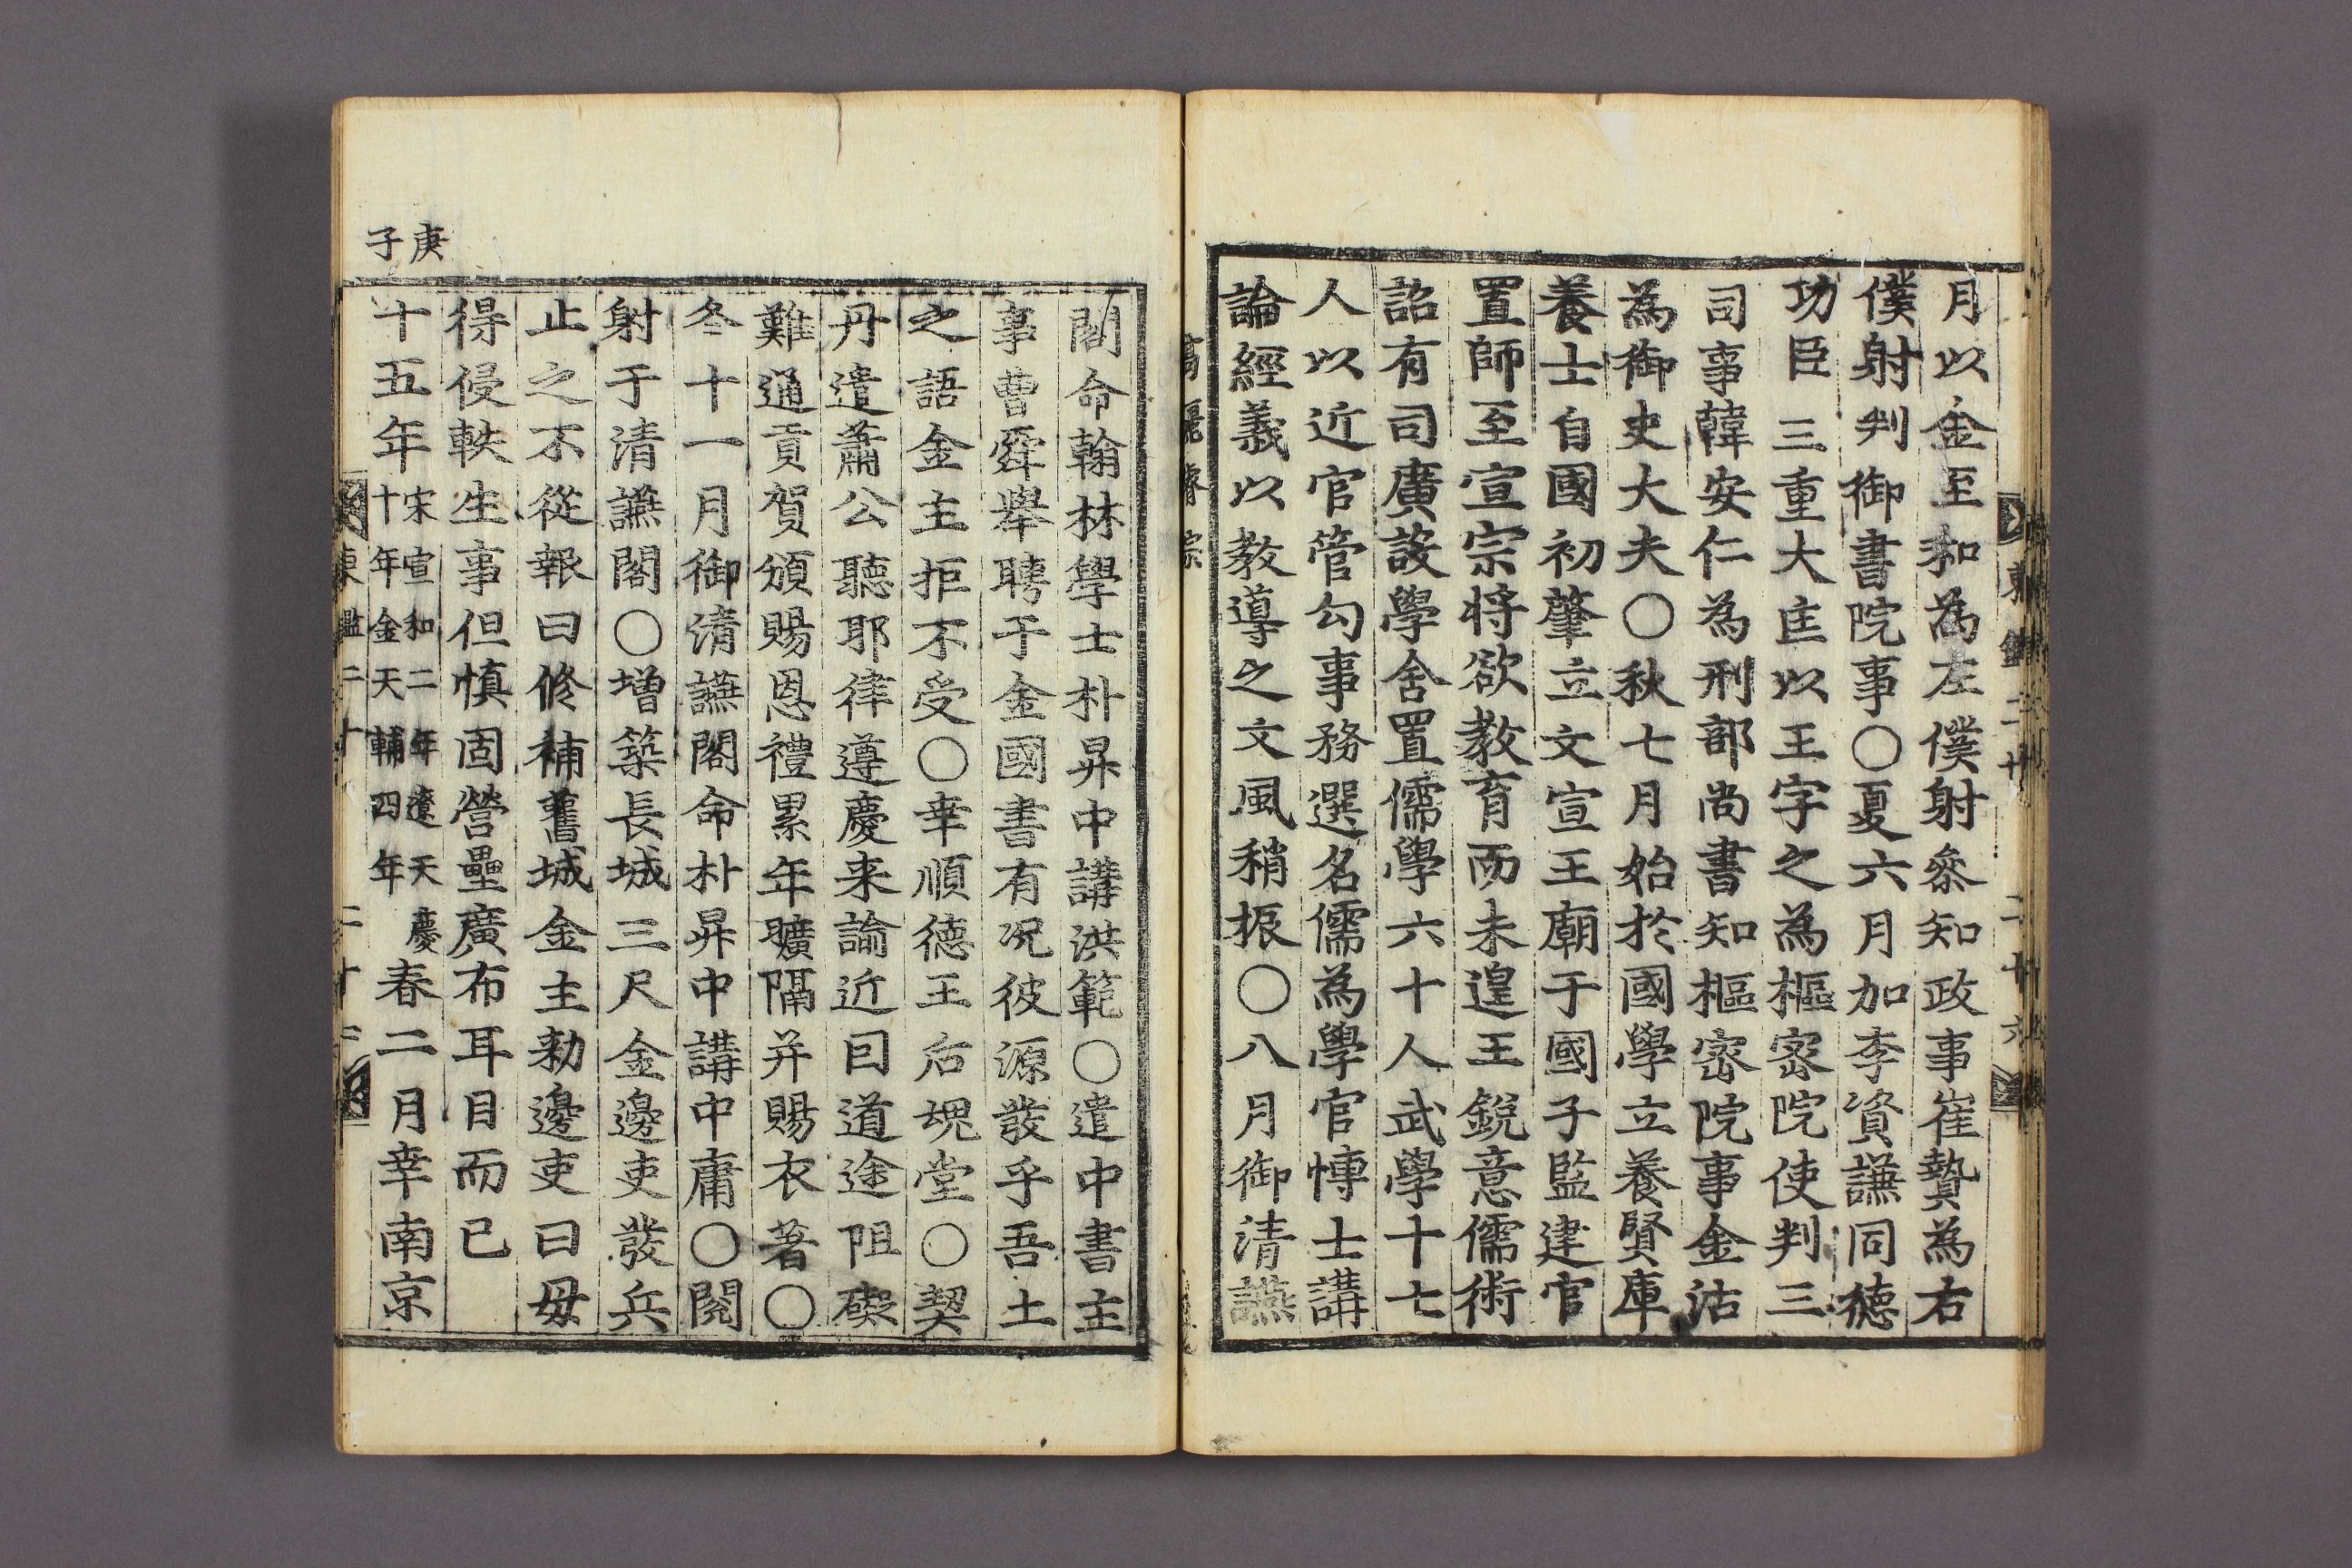 月以金至和為左僕射叅知政事崔贄為右
僕射判御書院事〇夏六月加李資謙同德
功臣三重大匡以王字之為樞密院使判三
司事韓安仁為刑部尚書知樞密院事金沽
為御史大夫〇秋七月始於國學立養賢庫
養士自國初肇立文宣王廟于國子監建官
置師至宣宗将欲教育而未遑王銳意儒術
詔有司廣設學舍置儒學六十人武學十七
人以近官管勾事務選名儒為學官博士講
論經義以教導之文風稍振〇八月御清讌
閣命翰林學士朴昇中講洪範〇遣中書主
事曹舜舉聘于金國書有况彼源發乎吾土
之語金主拒不受〇幸順德王后魂堂〇契
丹遣蕭公聽耶律遵慶来諭近曰道途阻礙
難通貢賀頒賜恩禮累年曠隔并賜衣著〇
冬十一月御清讌閣命朴昇中講中庸〇閱
射于清讌閣〇增築長城三尺金邊吏發兵
止之不從報曰修補舊城金主勑邊吏曰毋
得侵軼生事但慎固營壘廣布耳目而已
庚子
十五年宋宣和二年遼天慶十年金天輔四年春二月幸南京